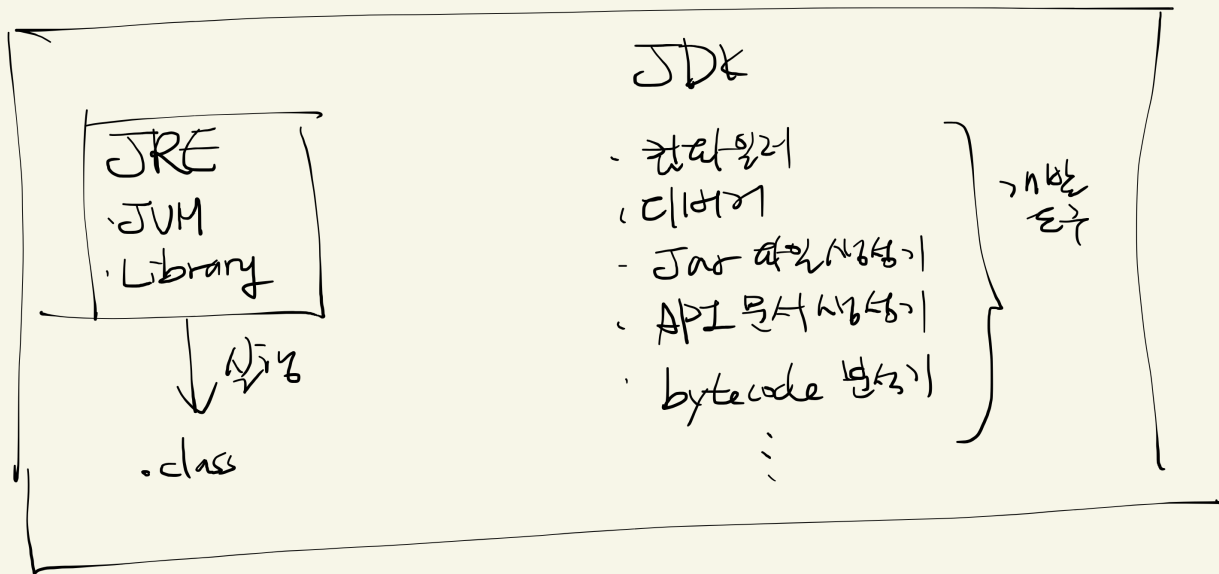 JDK
JRE
· JVM
· Library
실행
.class
· 컴파일러
· 디버거
- Jar 파일 생성기
· API 문서 생성기
· bytecode 분석기
개발
도구